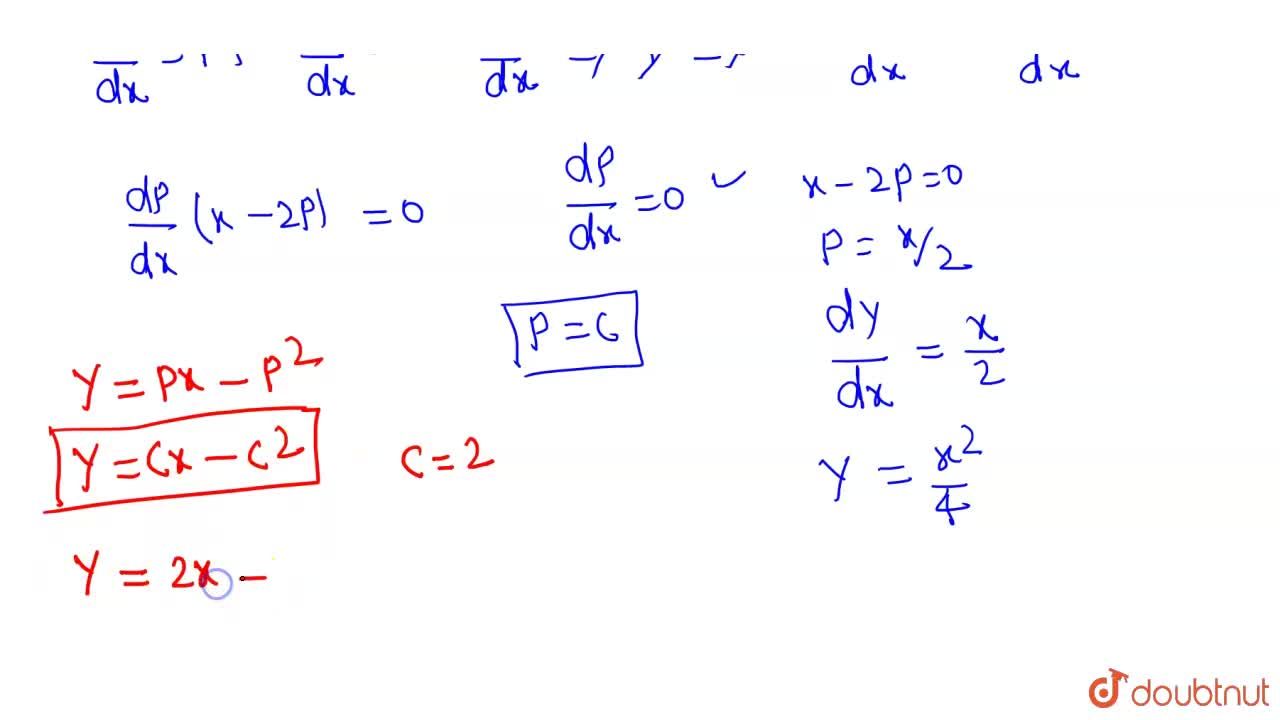 dx dx dx dx dx
dp/dx (x - 2p) = 0
dp/dx = 0 ✓
x - 2p = 0
p = x/2
P = C
dy/dx = x/2
y = px - p²
y = Cx - C²
C = 2
y = x²/4
y = 2x -
doubtnut